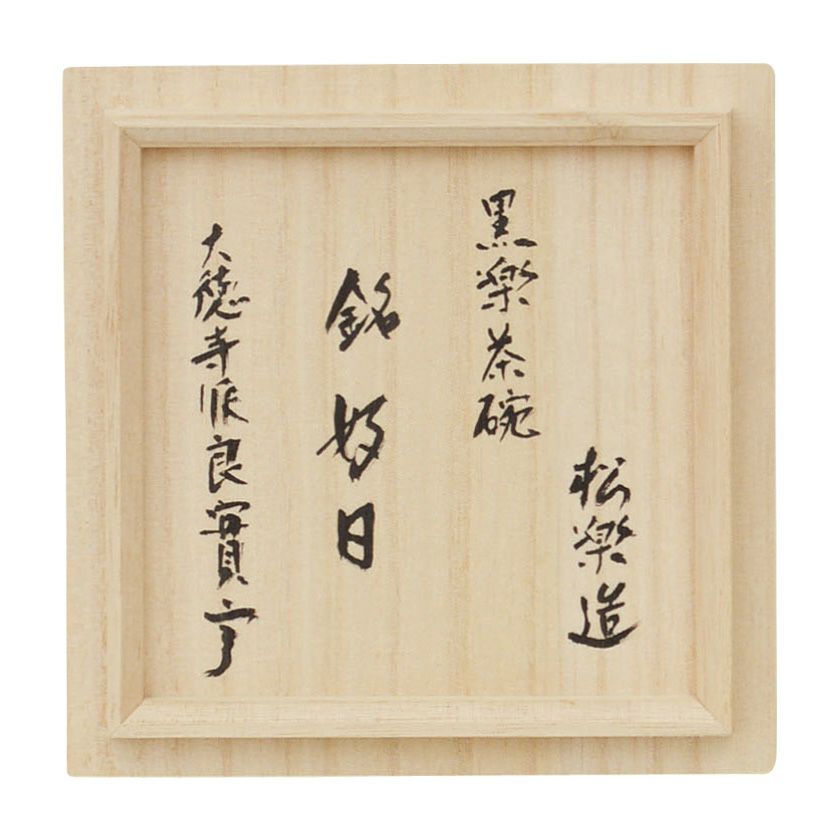 松楽造
黒楽茶碗
銘 好日
大徳寺派良實